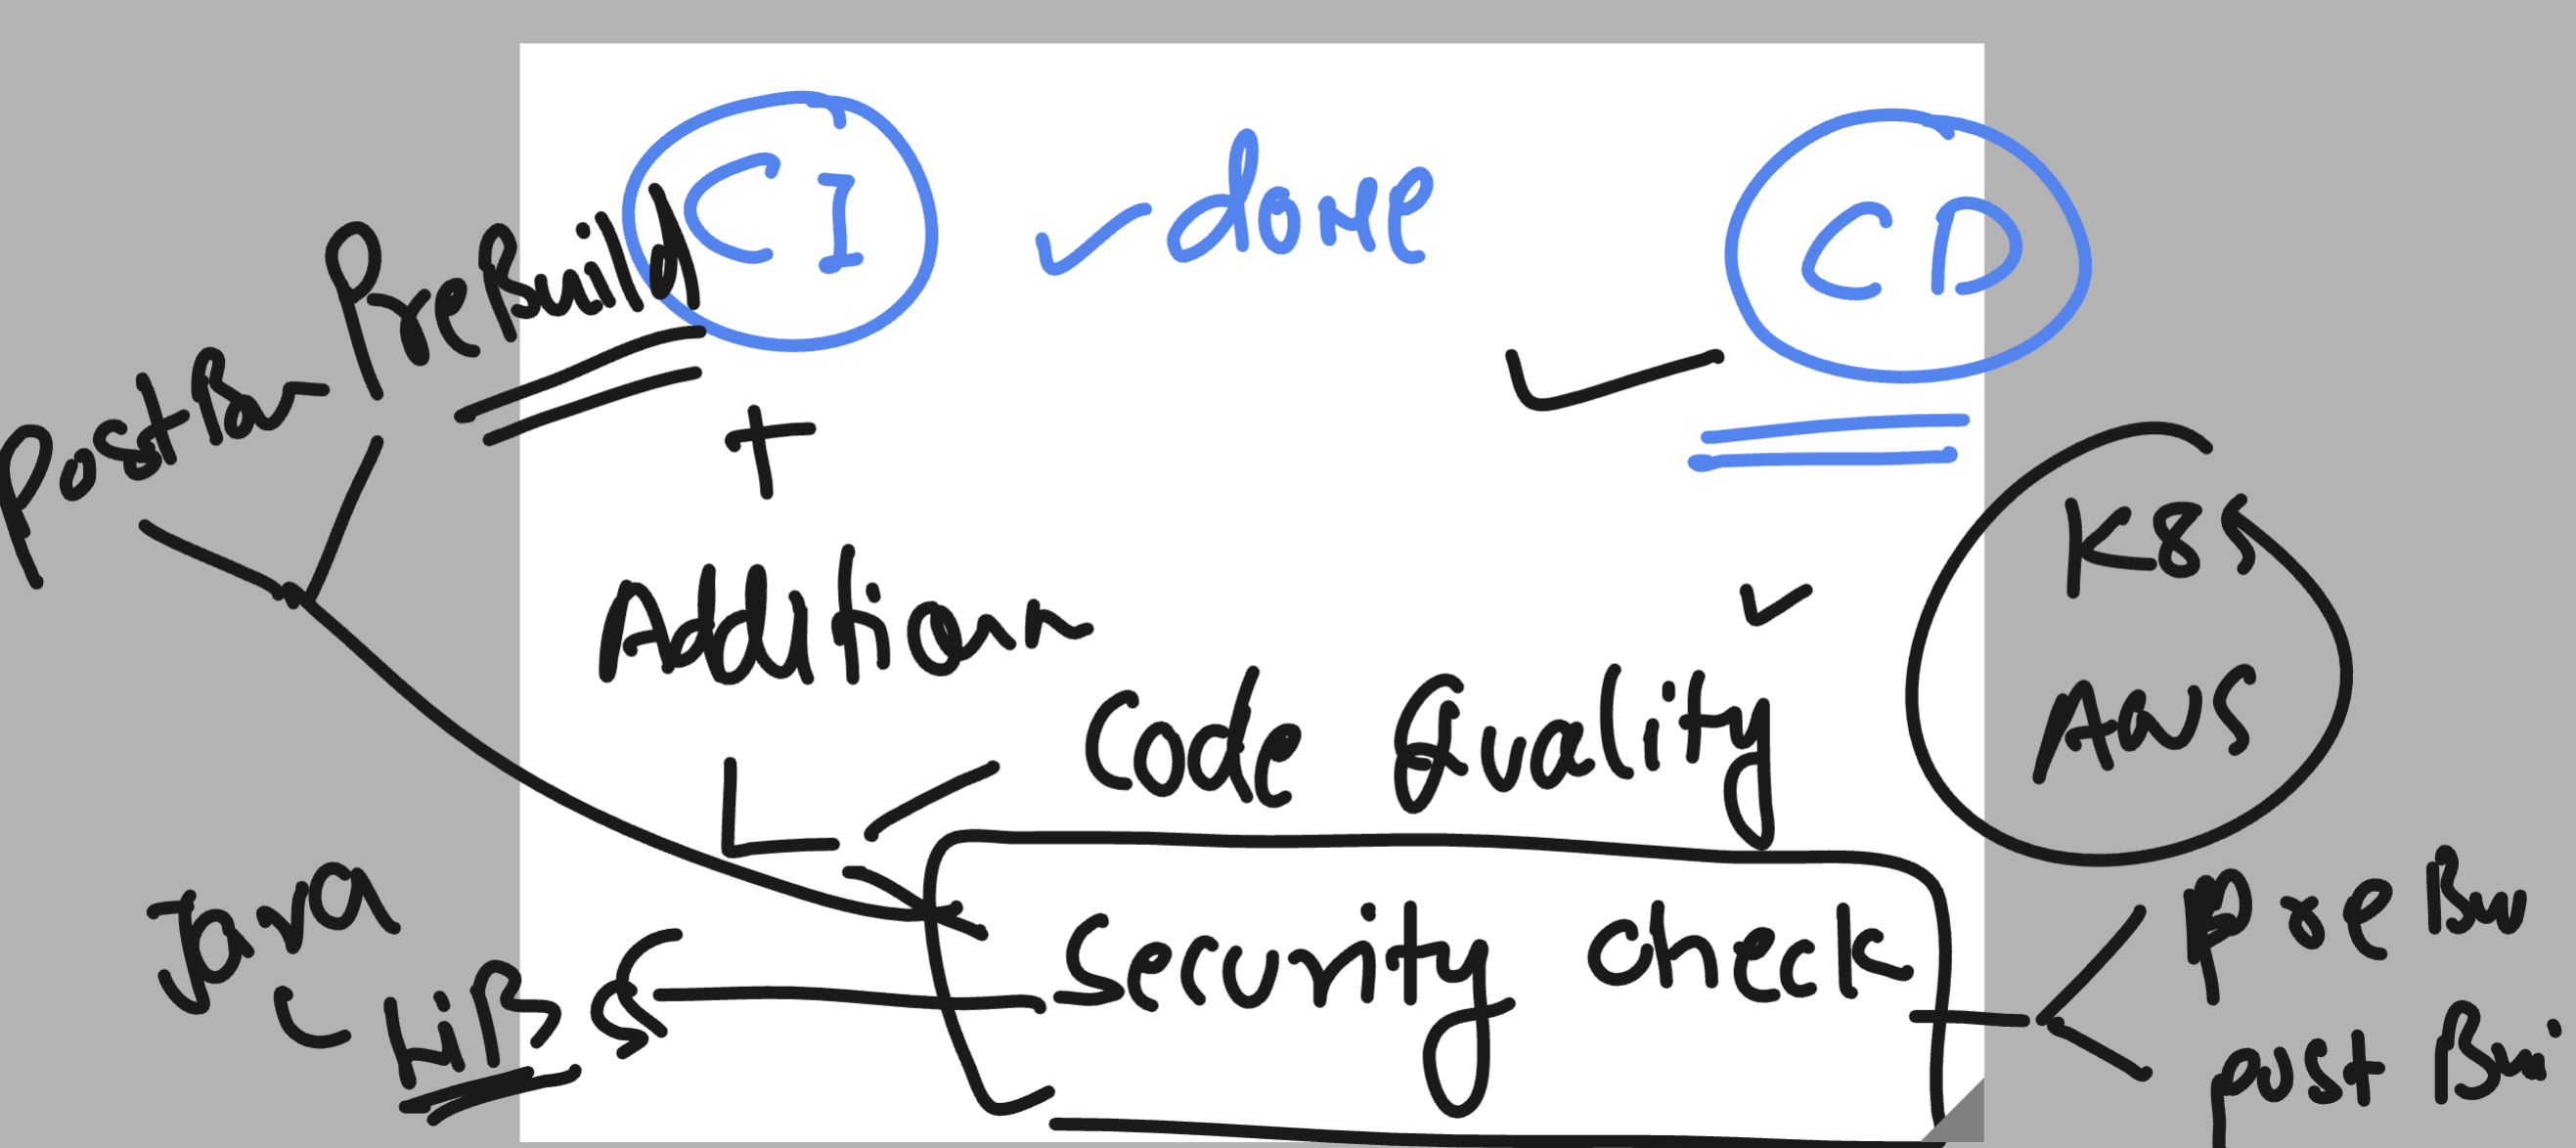 CI ✓ done
CD
PreBuild
PostBu
+
K8S
AWS
Addition
Code Quality
Security check
Java
LiBS
pre Bu
post Bui